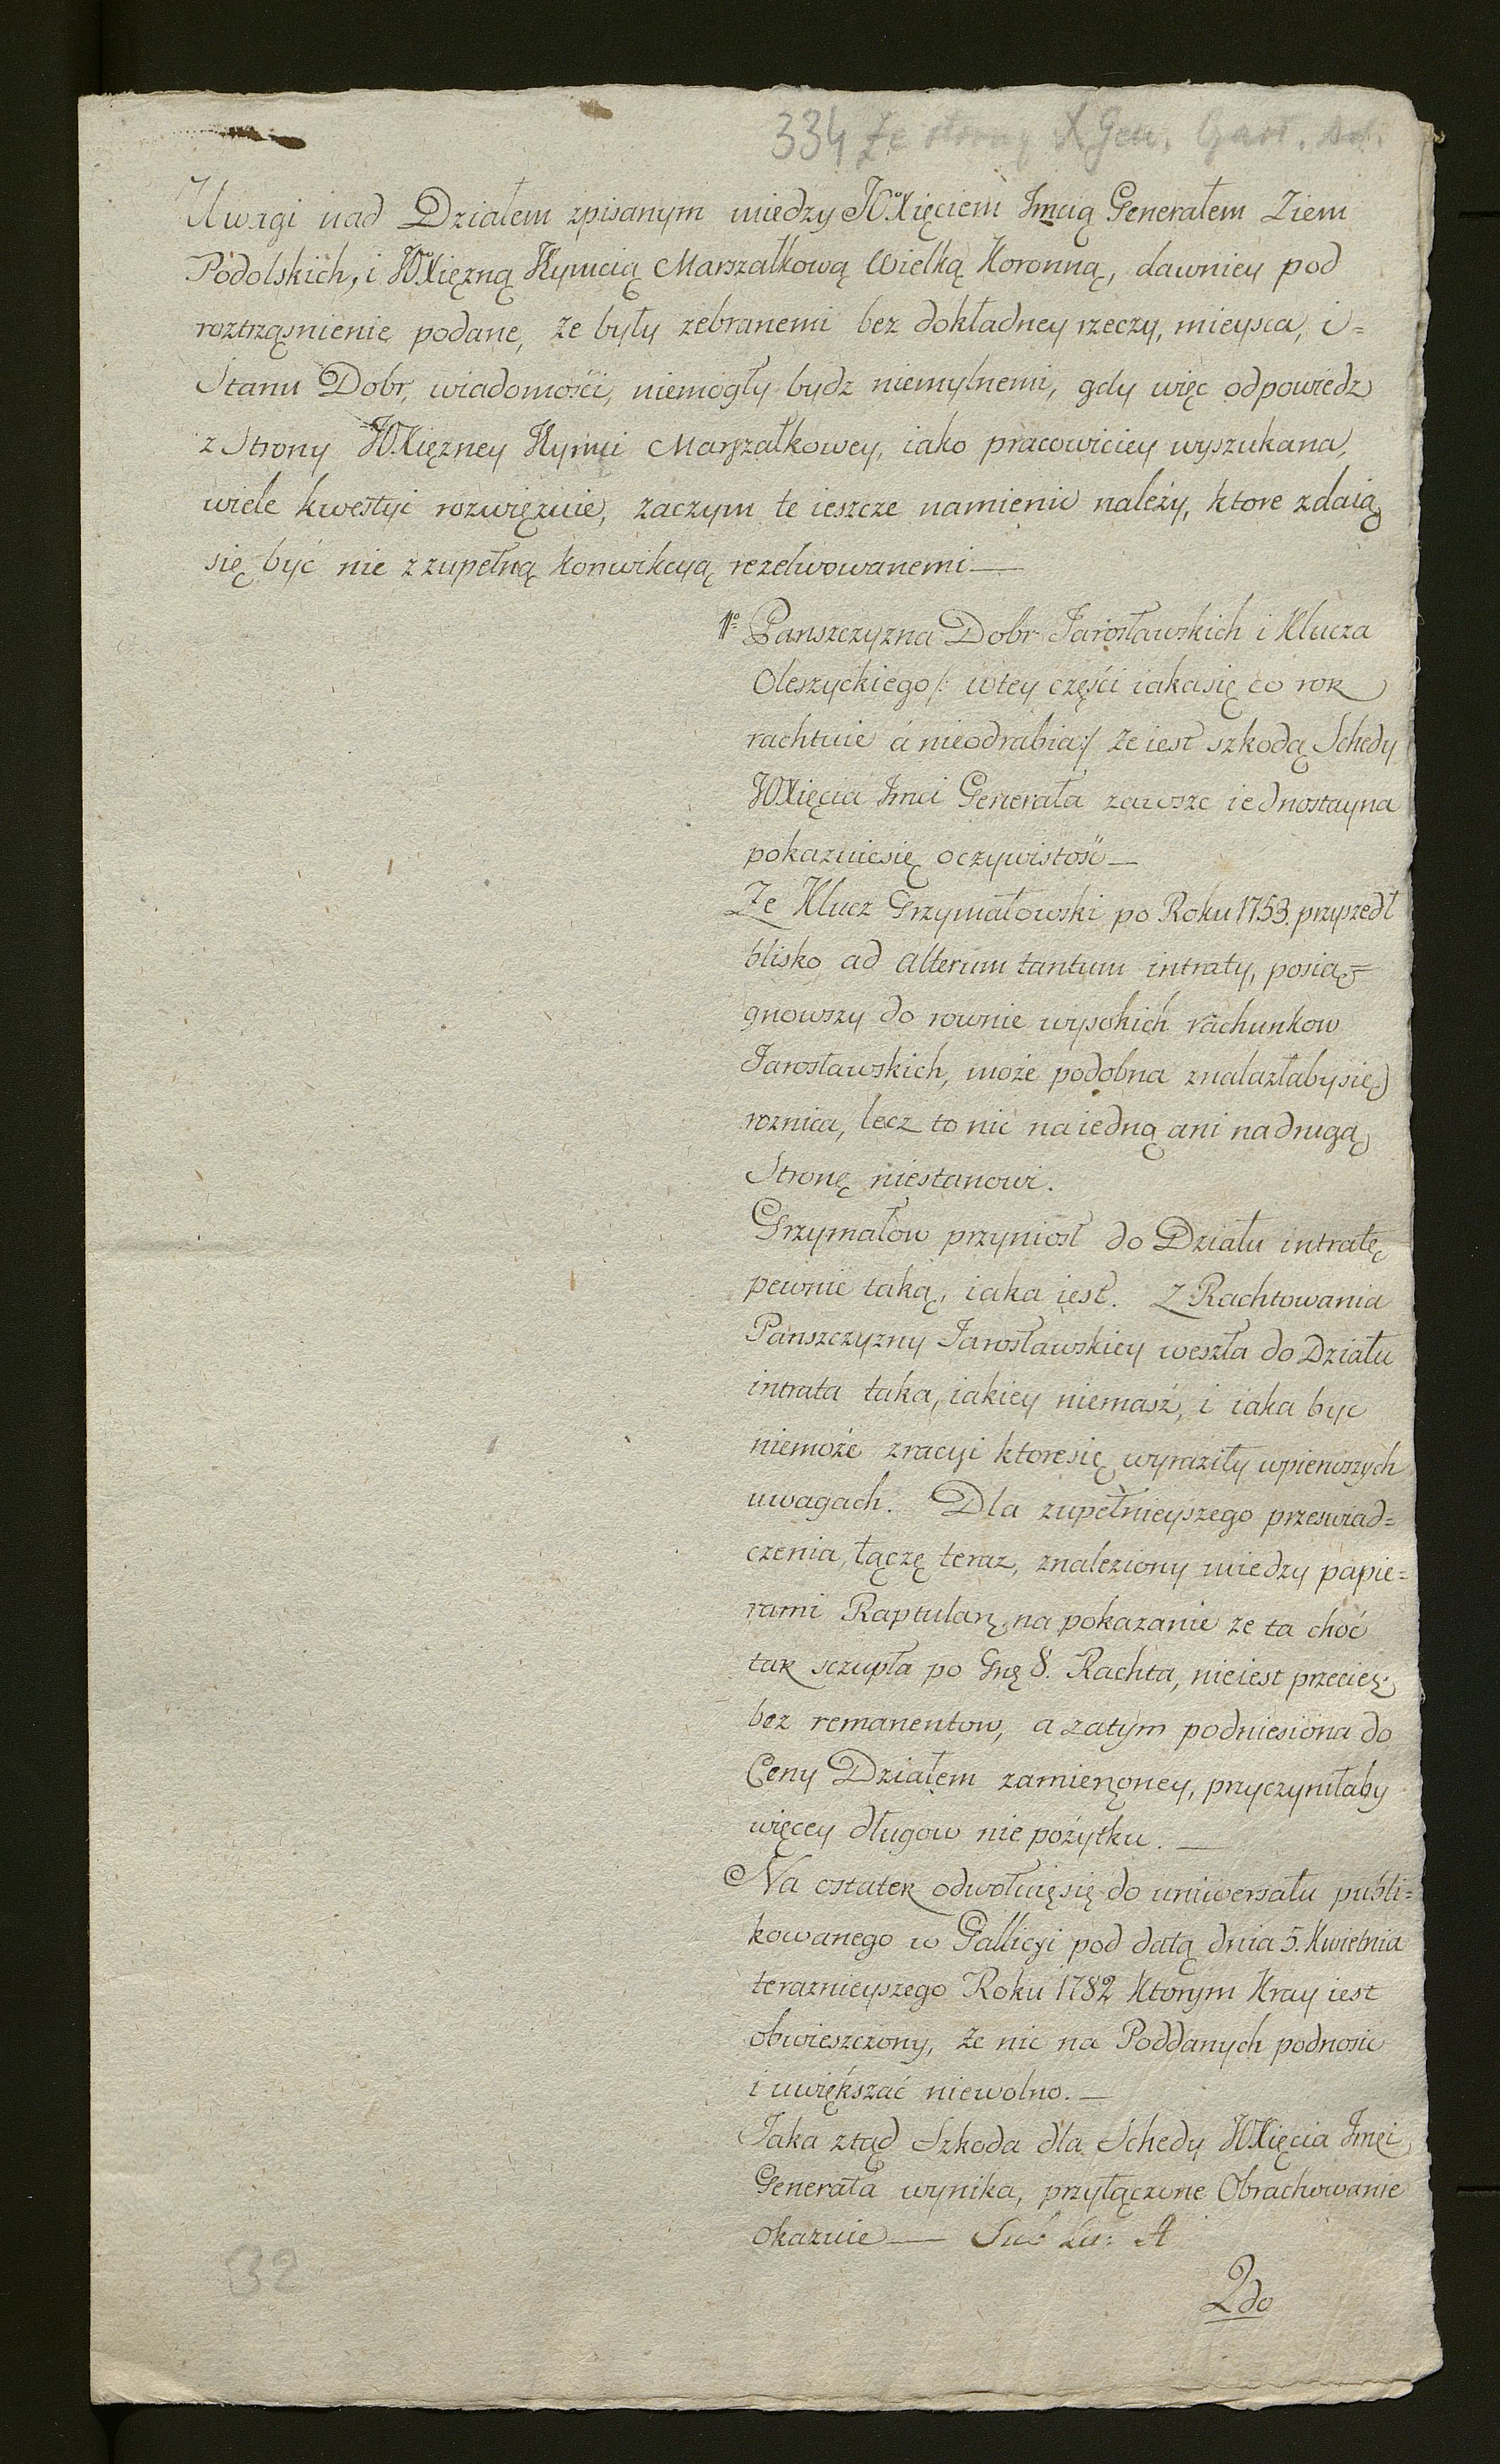 334 Ze strony X Gen.
Uwagi nad Działem zpisanym miedzy JOXięciem Jmcią Generałem Ziem
Podolskich, i JOXięzną Jeymcią Marszałkową Wielką Koronną, dawniey pod
roztrząsnienie podane, że były zebranemi bez dokładney rzeczy, mieysca, i=
Stanu Dobr, wiadomości, niemogły bydz niemylnemi, gdy więc odpowiedz
z Strony JOXięzney Jeymci Marszałkowey, iako pracowiciey wyszukana,
wiele kwestyi rozwięzuie, zaczym te ieszcze namienić należy, ktore zdaią
się być nie z zupełną konwikcyą rezelwowanemi —
1o Panszczyzna Dobr Jarosławskich i Klucza
Oleszyckiego /: w tey części iaka się co rok
rachuie á nieodrabia :/ że iest szkodą Schedy
JOXięcia Jmci Generała zawsze iednostayna
pokazuie się oczywistość —
Że Klucz Grzymałowski po Roku 1753. przyszedł
blisko ad alterum tantum intraty, posią=
gnowszy do rownie wysokich rachunkow
Jarosławskich, może podobna znalazłaby się
roznica, lecz to nic na iedną ani na drugą
Stronę niestanowi.
Grzymałow przyniosł do Działu intratę
pewnie taką, iaka iest. Z Rachtowania
Panszczyzny Jarosławskiey weszła do Działu
intrata taka, iakiey niemasz, i iaka byc
niemoże z racyi ktore się wyraziły w pierwszych
uwagach. Dla zupełnieyszego przeswiad=
czenia, łączę teraz, znaleziony miedzy papie=
rami Raptularz, na pokazanie ze ta choć
tak sczupła po Gr 8. Rachta, nieiest przecież
bez remanentow, a zatym podniesiona do
Ceny Działem zamierzoney, przyczyniłaby
więcey długow nie pożytku. —
Na ostatek odwołuię się do uniwersału publi=
kowanego w Gallicyi pod datą dnia 5. Kwietnia
teraznieyszego Roku 1782 Ktorym Kray iest
obwieszczony, że nic na Poddanych podnosic
i uwiększać niewolno. —
Jaka ztąd Szkoda dla Schedy JOXięcia Jmci
Generała wynika, przyłączone Obrachowanie
okazuie — Sub Lit: A
2do
32